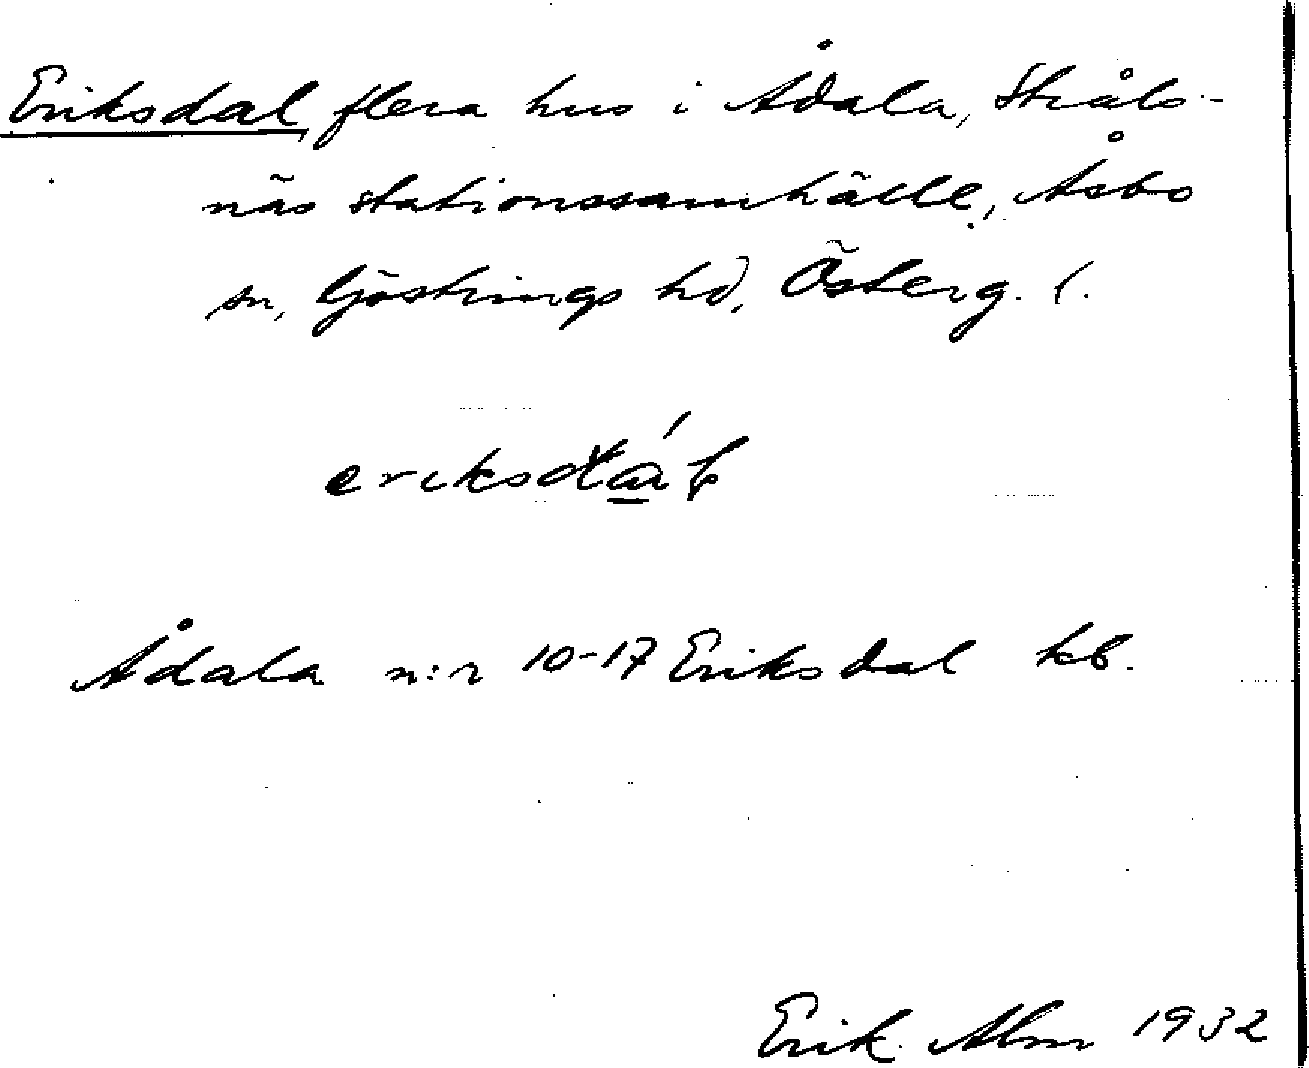 Eriksdal, flera hus i Ådala, Stråls-
näs stationssamhälle, Åsbo
sn, Göstrings hd, Österg. l.
Ådala n:r 10-17 Eriksdal kb.
Erik Alm 1932